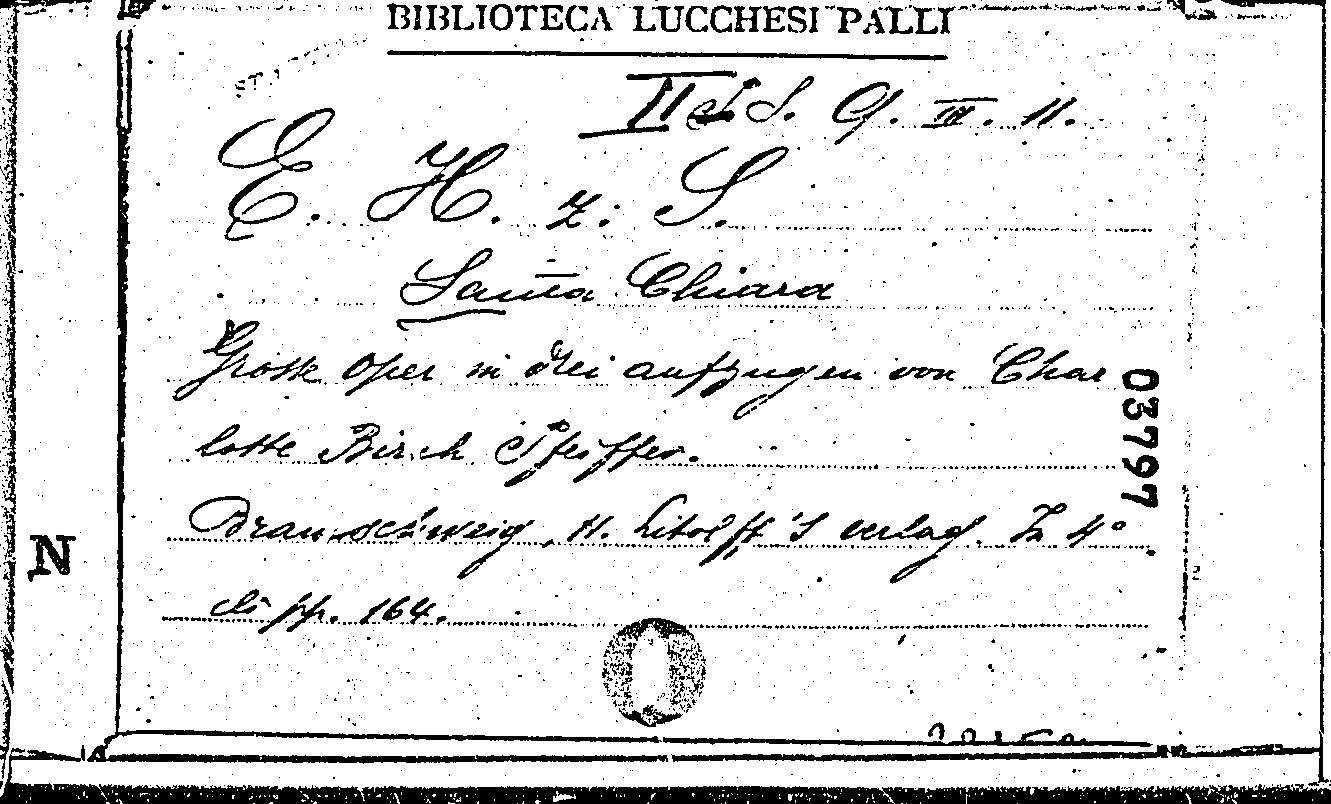 BIBLIOTECA LUCCHESI PALLI
II S. G. III. 11.
E. H. z: S.
Santa Chiara
Grosse Oper in drei aufzugen von Char
lotte Birch Pfeiffer.
Braunschweig, H. Litolff's verlag. In 4°.
di pp. 164.
03797
N